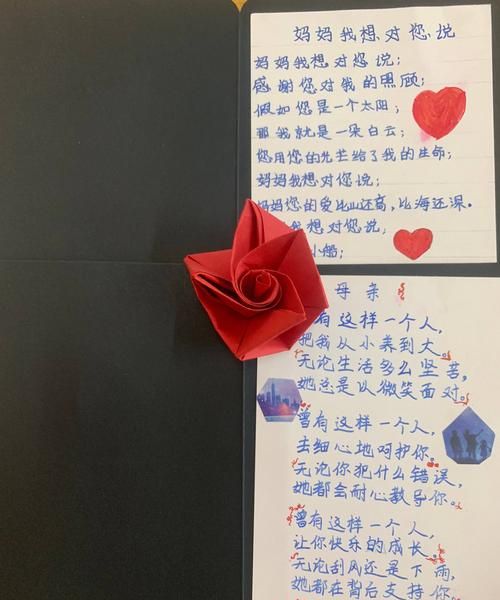 妈妈我想对您说
妈妈我想对您说；
感谢您对我的照顾；
假如您是一个太阳；
那我就是一朵白云；
您用您的光芒给了我的生命；
妈妈我想对您说；
妈妈您的爱比山还高，比海还深。
我想对您说；
小船；
母亲
有这样一个人，
把我从小养到大。
无论生活多么坚苦，
她总是以微笑面对。
曾有这样一个人，
去细心地呵护你。
无论你犯什么错误，
她都会耐心教导你。
曾有这样一个人，
让你快乐的成长。
无论刮风还是下雨，
她都在背后支持你。